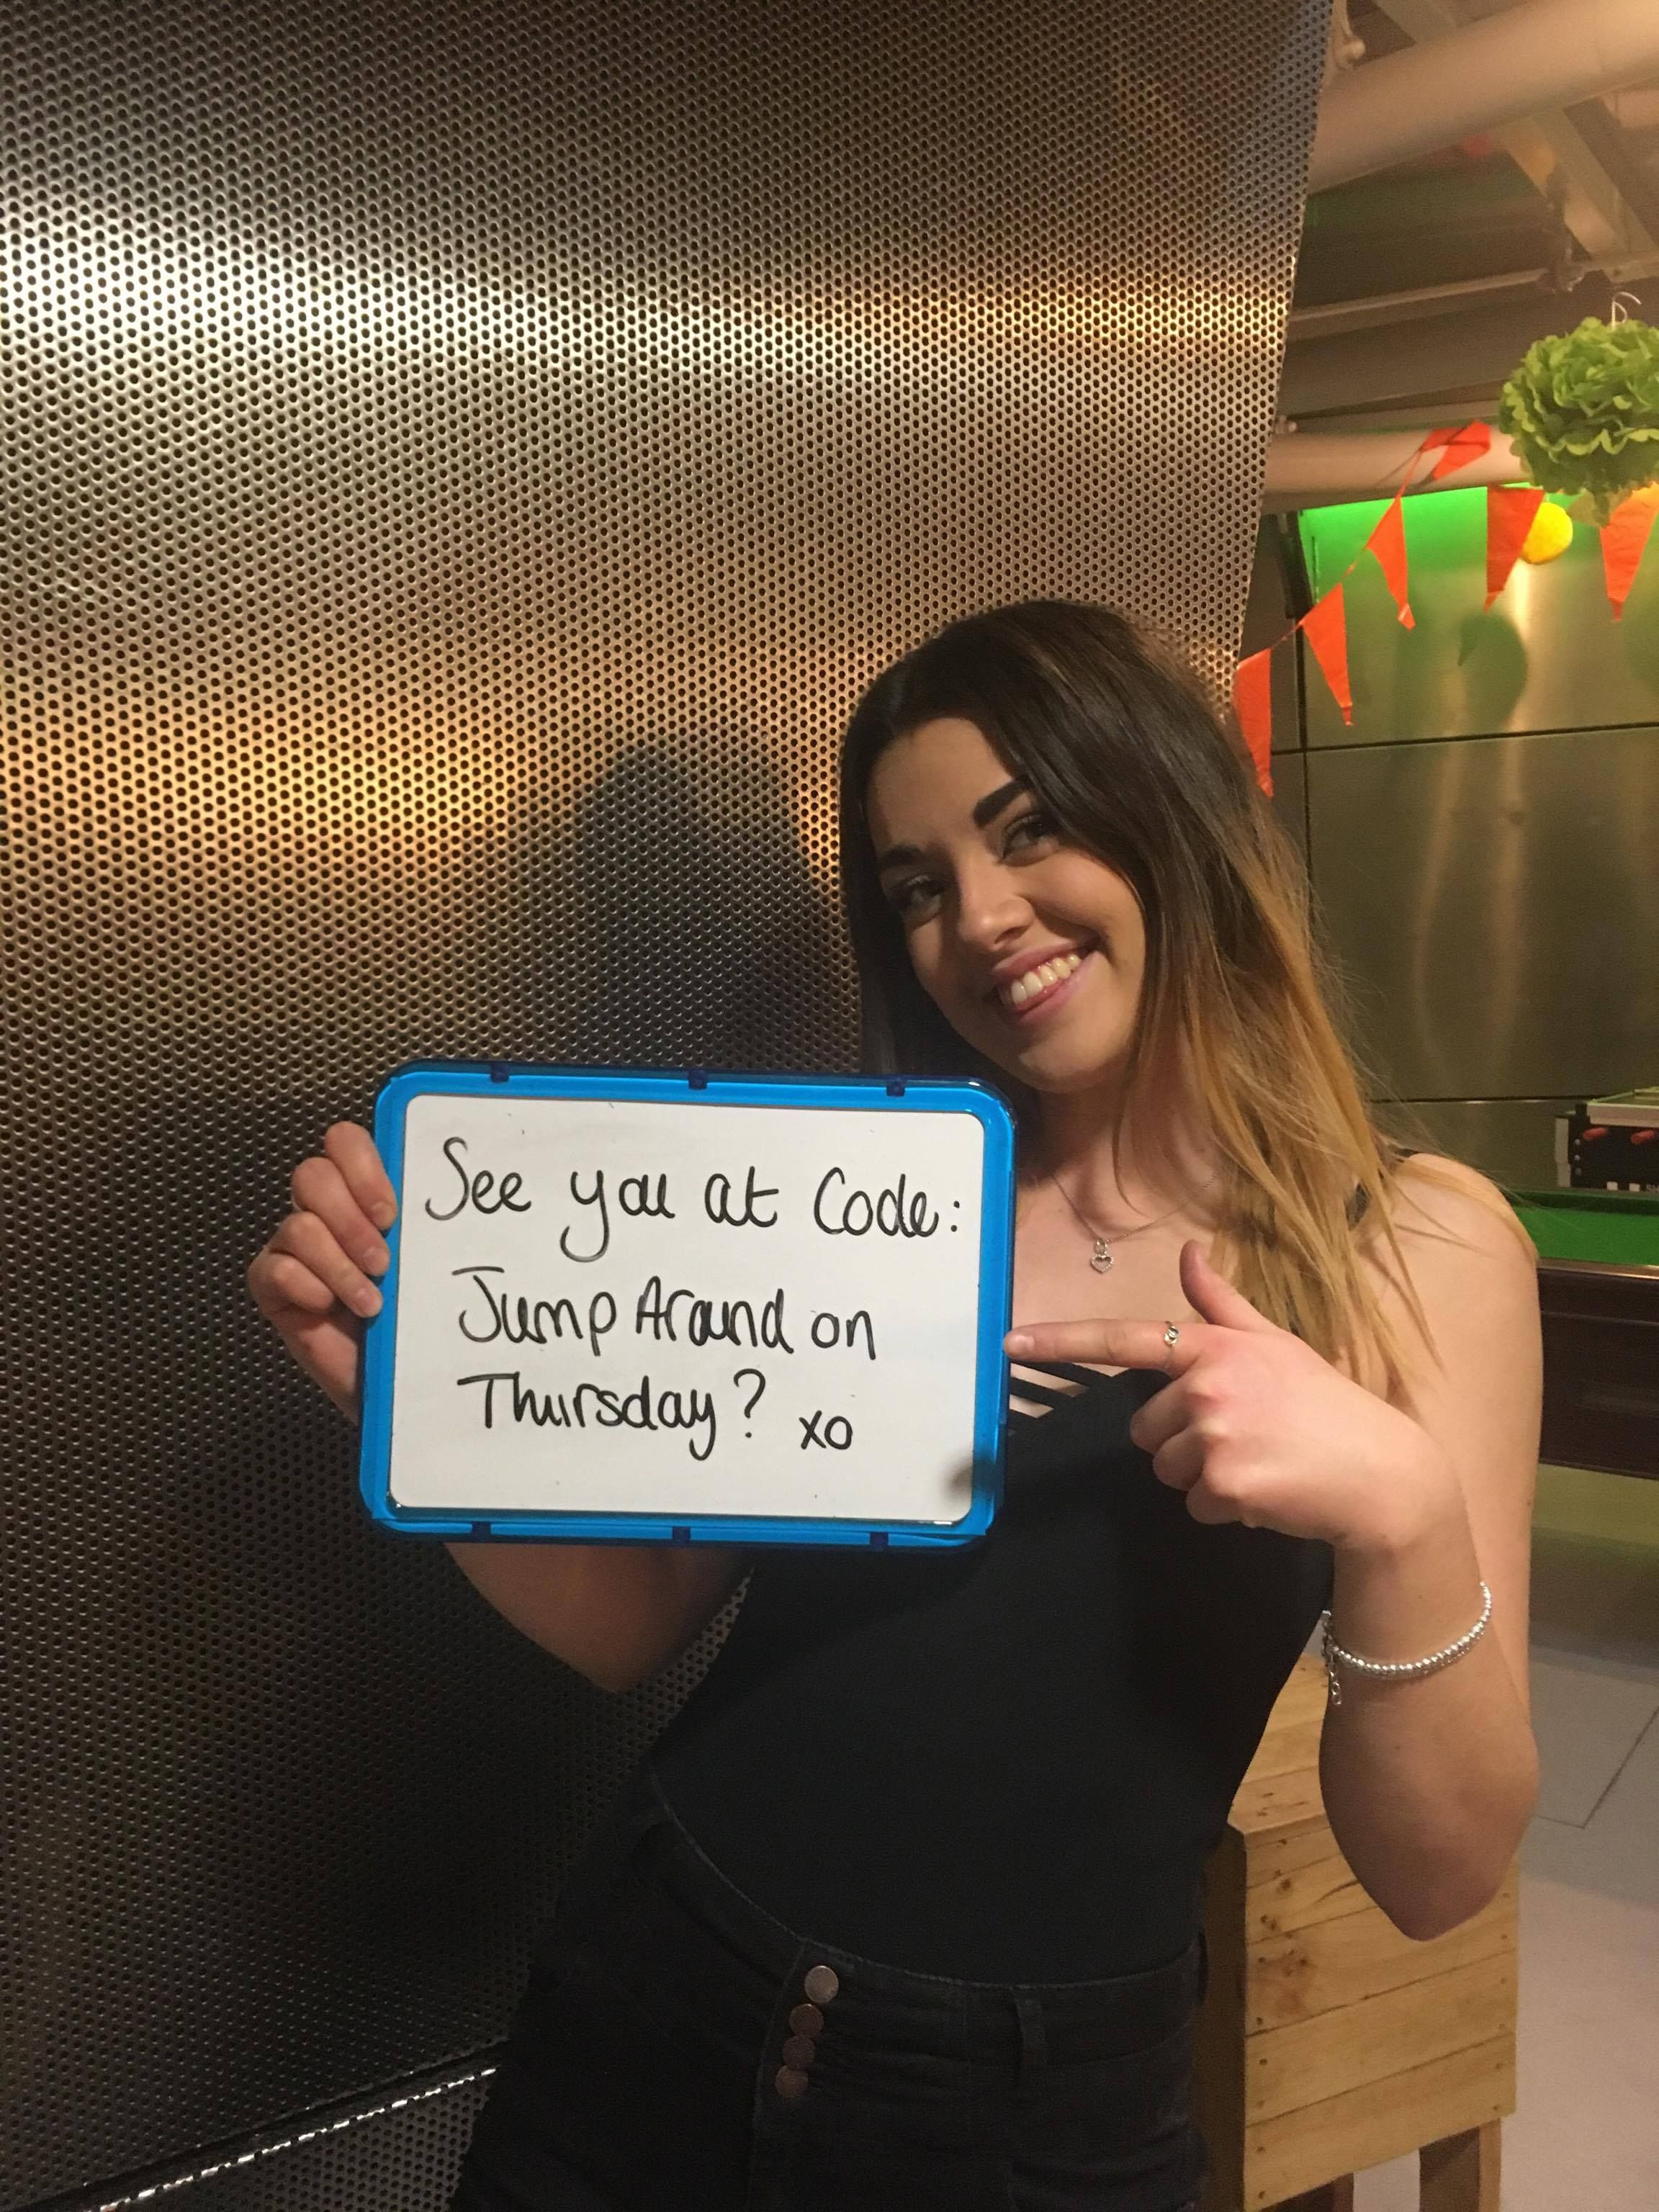 See you at Code:
Jump Around on
Thursday? xo